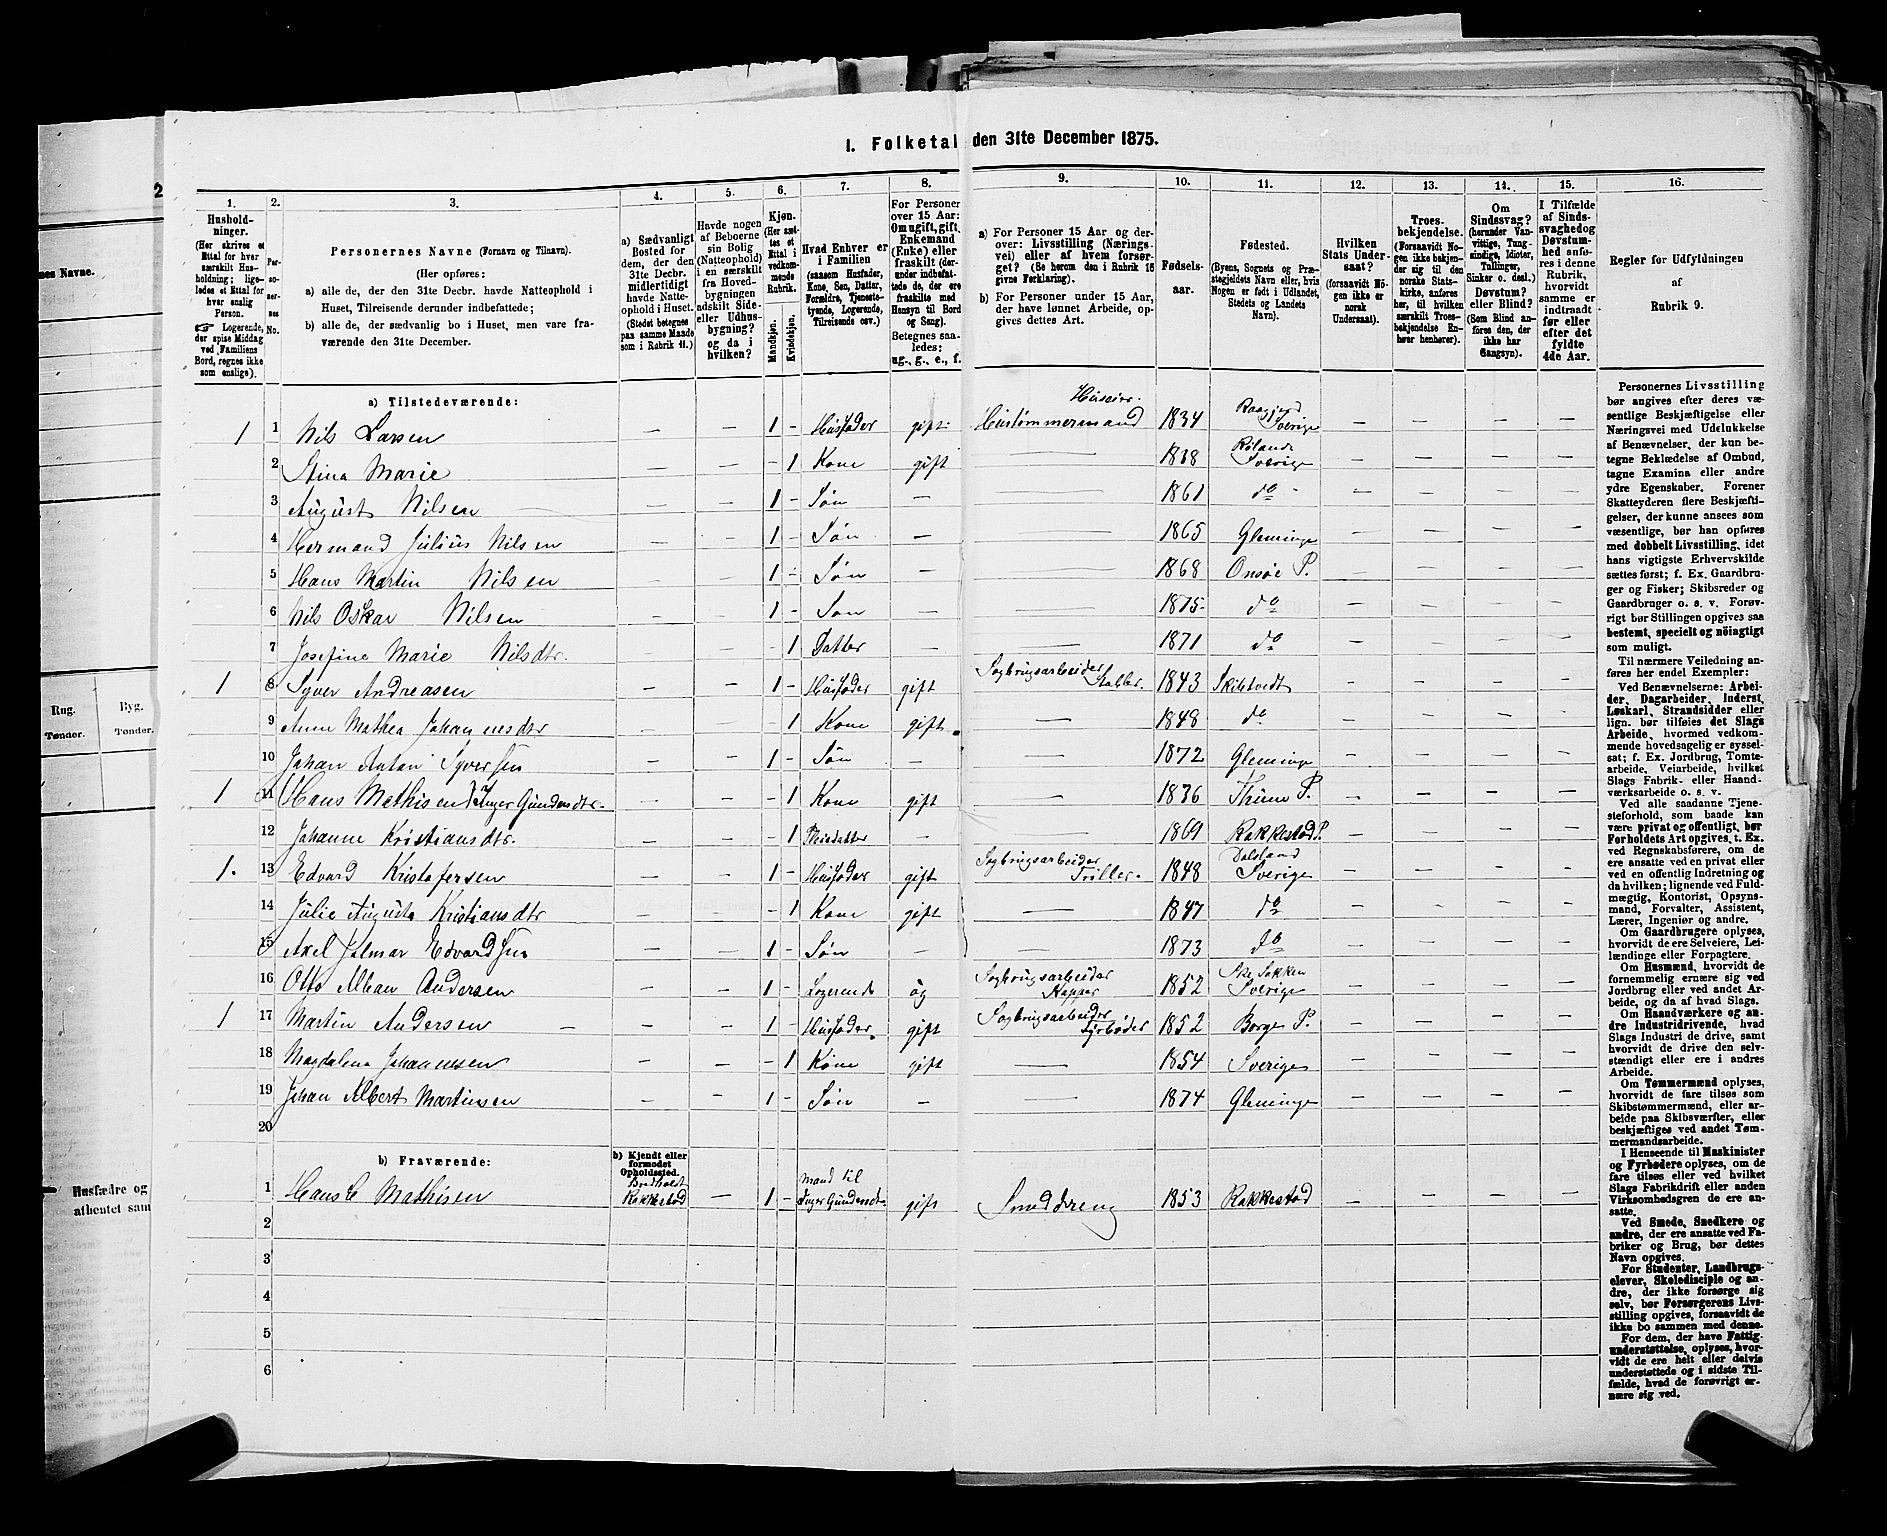 1. Folketal den 31te December 1875.
1. 2. 3. 4. 5. 6. 7. 8. 9. 10. 11. 12. 13. 14. 15. 16.
Hushold-
ninger.
(Her skrives et
Ettal for hver
særskilt Hus-
holdning; lige-
ledes et Ettal for
hver enslig
Person.
☞ Logerende,
der spise Middag
ved Familiens
Bord, regnes ikke
som enslige).
Per-
so-
ner-
nes
No.
Personernes Navne (Fornavn og Tilnavn).
(Her opføres:
a) alle de, der den 31te Decbr. havde Natteophold i
Huset, Tilreisende derunder indbefattede;
b) alle de, der sædvanlig bo i Huset, men vare fra-
værende den 31te December.
a) Sædvanligt
Bosted for
dem, der den
31te Decbr.
midlertidigt
havde Natte-
ophold i Huset.
(Stedet betegnes
paa samme Maade
som i Rubrik 11.)
Havde nogen
af Beboerne
sin Bolig
(Natteophold)
i en særskilt
fra Hoved-
bygningen
adskilt Side-
eller Udhus-
bygning?
og da i
hvilken?
Kjøn.
(Her sæt-
tes et
Ettal i
vedkom-
mende
Rubrik.
Mandkjøn.
Kvindekjøn.
Hvad Enhver er
i Familien
(saasom Husfader,
Kone, Søn, Datter,
Forældre, Tjeneste-
tyende, Logerende,
Tilreisende osv.)
For Personer
over 15 Aar:
Om ugift, gift,
Enkemand
(Enke) eller
fraskilt (der-
under indbefat-
tede de, der ere
fraskilte med
Hensyn til Bord
og Seng).
Betegnes saa-
ledes:
ug., g., e., f.
a) For Personer 15 Aar og der-
over: Livsstilling (Nærings-
vei) eller af hvem forsør-
get? (Se herom den i Rubrik 16
givne Forklaring).
b) For Personer under 15 Aar,
der have lønnet Arbeide, op-
gives dettes Art.
Fødsels-
aar.
Fødested.
(Byens, Sognets og Præ-
stegjeldets Navn eller, hvis
Nogen er født i Udlandet,
Stedets og Landets
Navn).
Hvilken
Stats Under-
saat?
(forsaavidt No-
gen ikke er
norsk
Undersaat).
Troes-
bekjendelse.
(Forsaavidt No-
gen ikke bekjen-
der sig til den
norske Stats-
kirke, anføres
her, til hvilken
særskilt Troes-
bekjendelse En-
hver henhører).
Om
Sindssvag?
(herunder Van-
vittige, Tung-
sindige, Idioter,
Tullinger,
Sinker o. desl.)
Døvstum?
eller Blind?
(Som Blind an-
føres den, der
ikke har
Gangsyn).
I Tilfælde
af Sinds-
svaghed og
Døvstum-
hed anfø-
res i denne
Rubrik,
hvorvidt
samme er
indtraadt
før eller
efter det
fyldte
4de Aar.
Regler for Udfyldningen
af
Rubrik 9.
a) Tilstedeværende:
Huseier.
1 1 Nils Larsen — — 1 - Husfader gift Hustømmermand 1834 Sverige — — — —
2 Stina Marie — — - 1 Kone gift — 1838 Rølanda Sverige — — — —
3 August Nilsen — — 1 - Søn — — 1861 do — — — —
4 Hermand Julius Nilsen — — 1 - Søn — — 1865 Gleminge — — — —
5 Hans Martin Nilsen — — 1 - Søn — — 1868 Onsøe P. — — — —
6 Nils Oskar Nilsen — — 1 - Søn — — 1875 do — — — —
7 Josefine Marie Nilsdtr. — — 1 Datter — — 1871 do — — — —
1 8 Syver Andreasen — — 1 - Husfader gift Sagbrugsarbeider Stabler. 1843 Skibtvedt — — — —
9 Anne Mathea Johannesdtr — — 1 Kone gift. — 1848 do — — — —
10 Johan Anton Syversen — — 1 - Søn — — 1872 Gleminge — — — —
1 11 Hans Mathisen Inger Gundersdtr. — — - 1 Kone gift — 1836 Thune P. — — — —
12 Johanne Kristiansdtr. — — 1 — — 1869 Rakkestad P. — — — —
1. 13 Edvard Kristofersen — — 1 - Husfader gift Sagbrugsarbeider Triller. 1848 Dalsland Sverige — — — —
14 Julie Augusta Kristiansdtr — — - 1 Kone gift — 1847 do — — — —
15 Axel Jalmar Edvardsen — — 1 - Søn — — 1873 do — — — —
16 Otto Alban Andersen — — 1 - Logerende ug Sagbrugsarbeider Kapper 1852 Sverige — — — —
1 17 Martin Andersen — — 1 - Husfader. gift Sagbrugsarbeider Fyrbøder 1852 Borge P. — — — —
18 Magdalena Johannesen — — - 1 Kone gift — 1854 Sverige — — — —
19 Johan Albert Martinsen — — 1 - Søn — — 1874 Gleminge — — — —
20
b) Fraværende:
b) Kjendt eller
formodet
Opholdssted.
1 Hans C Mathisen Rakkestad — 1 - mand til Inger Gundersdtr. gift Smeddreng 1853 Rakkestad — — — —
2
3
4
5
6
Personernes Livsstilling
bør angives efter deres væ-
sentlige Beskjæftigelse eller
Næringsvei med Udelukkelse
af Benævnelser, der kun be-
tegne Beklædelse af Ombud,
tagne Examina eller andre
ydre Egenskaber. Forener
Skatteyderen flere Beskjæfti-
gelser, der kunne ansees som
væsentlige, bør han opføres
med dobbelt Livsstilling, idet
hans vigtigste Erhvervskilde
sættes først; f. Ex. Gaardbru-
ger og Fisker; Skibsreder og
Gaardbruger o. s. v. Forøv-
rigt bør Stillingen opgives saa
bestemt, specielt og nøiagtigt
som muligt.
Til nærmere Veiledning an-
føres her endel Exempler:
Ved Benævnelserne: Arbei-
der, Dagarbeider, Inderst,
Løskarl, Strandsidder eller
lign. bør tilføies det Slags
Arbeide, hvormed vedkom-
mende hovedsagelig er syssel-
sat; f. Ex. Jordbrug, Tomte-
arbeide, Veiarbeide, hvilket
Slags Fabrik- eller Haand-
værksarbeide o. s. v.
Ved alle saadanne Tjene-
steforhold, som baade kan
være privat og offentligt, bør
Forholdets Art opgives, t. Ex.
ved Regnskabsførere, om de
ere ansatte ved en privat eller
ved en offentlig Indretning og
da hvilken; lignende ved Fuld-
mægtig, Kontorist, Opsyns-
mand, Forvalter, Assistent,
Lærer, Ingeniør og andre.
Om Gaardbrugere oplyses,
hvorvidt de ere Selveiere, Lei-
lændinge eller Forpagtere.
Om Husmænd, hvorvidt de
fornemmelig ernære sig ved
Jordbrug eller ved andet Ar-
beide, og da af hvad Slags.
Om Haandværkere og an-
dre Industridrivende, hvad
Slags Industri de drive, samt
hvorvidt de drive den selv-
stændigt eller ere i andres
Arbeide.
Om Tømmermænd oplyses,
hvorvidt de fare tilsøs som
Skibstømmermænd, eller ar-
beide paa Skibsværfter, eller
beskjæftiges ved andet Tøm-
mermandsarbeide.
I Henseende til Maskinister
og Fyrbødere oplyses, om de
fare tilsøs eller ved hvilket
Slags Fabrikdrift eller anden
Virksomhedsgren de ere an-
satte.
Ved Smede, Snedkere og
andre, der ere ansatte ved Fa-
briker og Brug, bør dettes
Navn opgives.
For Studenter, Landbrugs-
elever, Skoledisciple og an-
dre, der ikke forsørge sig
selv, bør Forsørgerens Livs-
stilling opgives, forsaavidt de
ikke bo sammen med denne.
For dem, der have Fattig-
understøttelse, oplyses, hvor-
vidt de ere helt eller delvis
understøttede og i sidste Til-
fælde, hvad de forøvrigt er-
nære sig ved.
2
nes Navne.
Rug. Byg.
Tønder. Tønder.
Husfædre og
athentet sam